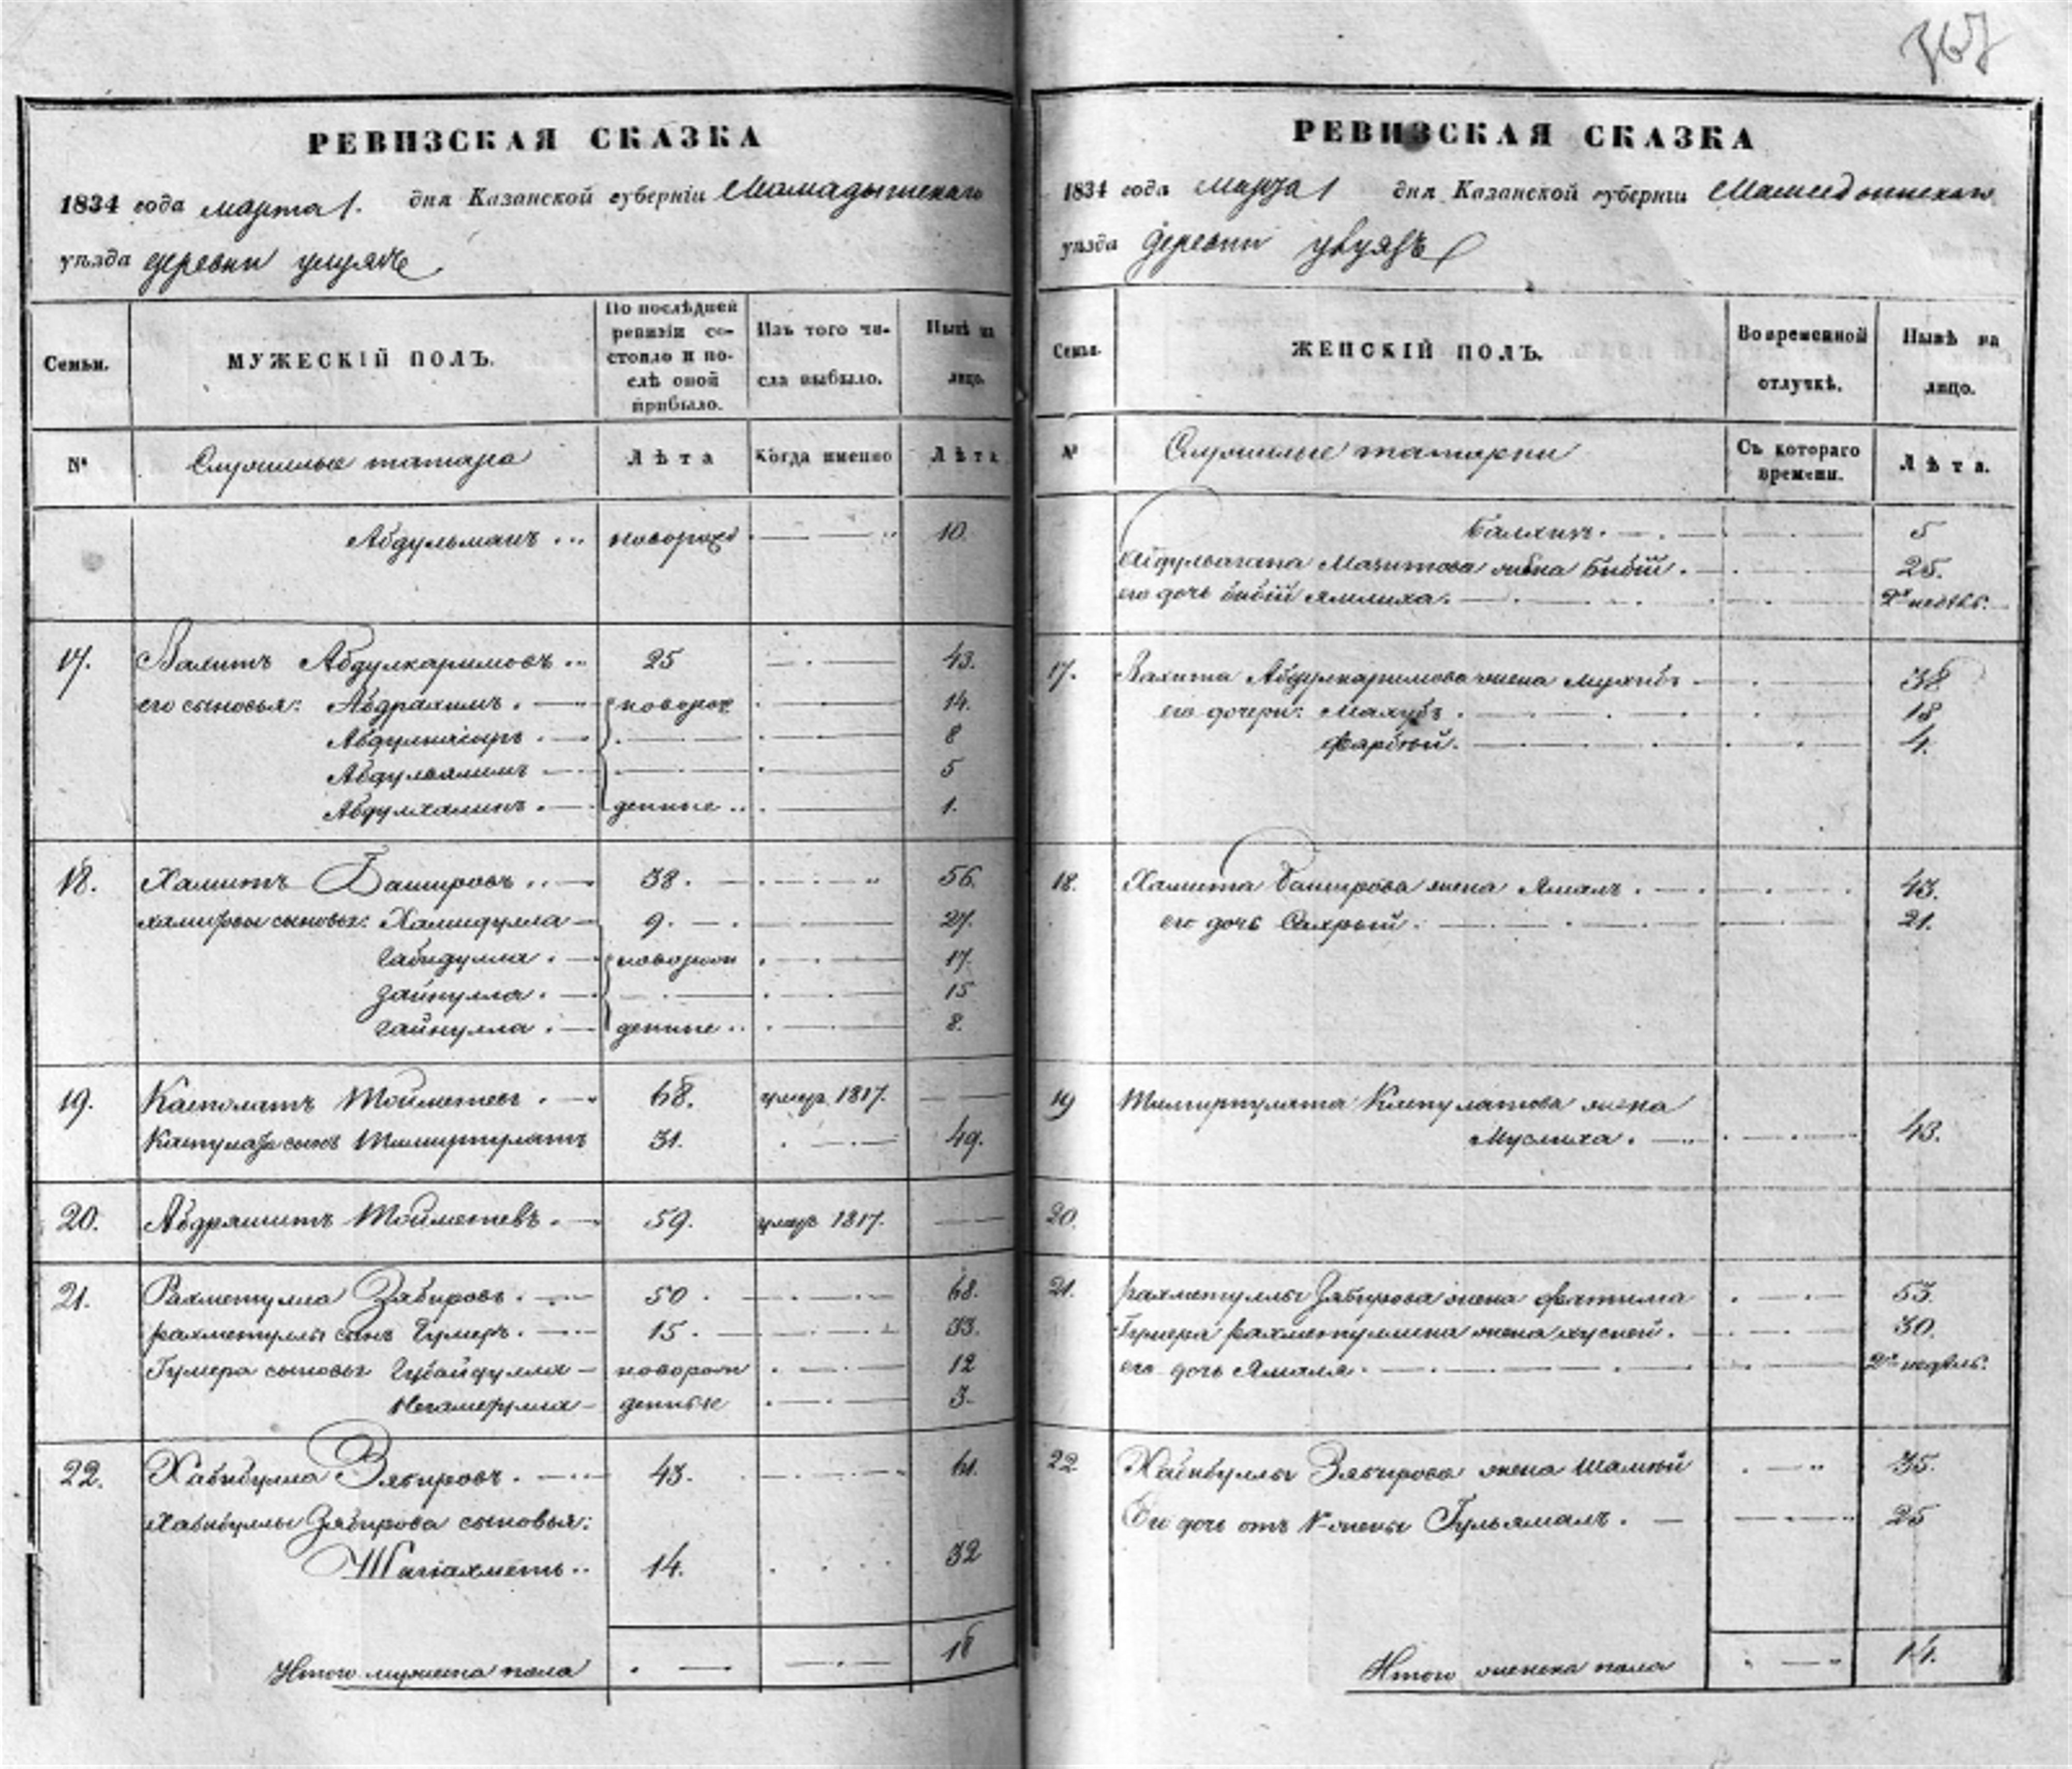 367
РЕВИЗСКАЯ СКАЗКА
1834 года марта 1. дня Казанской губерніи Мамадышскаго
уѣзда деревни
Семьи.
МУЖЕСКІЙ ПОЛЪ.
По послѣдней ревизіи состояло и послѣ оной прибыло.
Изъ того числа выбыло.
Нынѣ на лицо.
№
Служилые татара
Лѣта
Когда именно
Лѣта
Абдульманъ новорожд 10.
17. Валитъ Абдулкаримовъ 25 43.
его сыновья: Абдрахимъ новорож 14.
Абдулнасыръ 8
Абдулвалитъ 5
Абдулхалитъ денные 1.
18. Хамитъ Башировъ 38. 56.
сыновья: Хамидулла 9. 27.
Габидулла новорож 17.
Зайнулла 15
Гайнулла денные 8.
19. Тойметевъ 68. умер 1817.
сынъ Темирпулатъ 31. 49.
20. Абдряшитъ Тойметевъ 59. умеръ 1817.
21. Рахметулла Зябировъ 50. 68.
Рахметуллы сынъ Гумеръ 15. 33.
Гумера сыновья Губайдулла новорож 12
денные 3
22. Хабибулла Зябировъ 43. 61.
Хабибуллы Зябирова сыновья:
Шагіахметъ 14. 32
Итого мужеска пола 18
РЕВИЗСКАЯ СКАЗКА
1834 года марта 1 дня Казанской губерніи Мамадышскаго
уѣзда деревни
Семьи.
ЖЕНСКІЙ ПОЛЪ.
Во временной отлучкѣ.
Нынѣ на лицо.
№
Служилые татарки
Съ котораго времени.
Лѣта.
5
жена Бибій 25.
его дочь бибій 2х недѣль.
17. Вахита Абдулкаримова жена 38
его дочери: Махубъ 18
4.
18. Хамита Баширова жена Ямалъ 43.
его дочь 21.
19 Темирпулата жена
Муслиха 43.
20.
21. Рахметуллы Зябирова жена Фатима 53.
Гумера жена 30.
его дочь Ямаля 2х недѣль.
22. Хабибуллы Зябирова жена 35.
Его дочь отъ 1й жены Гульямалъ 25
Итого женска пола 14.